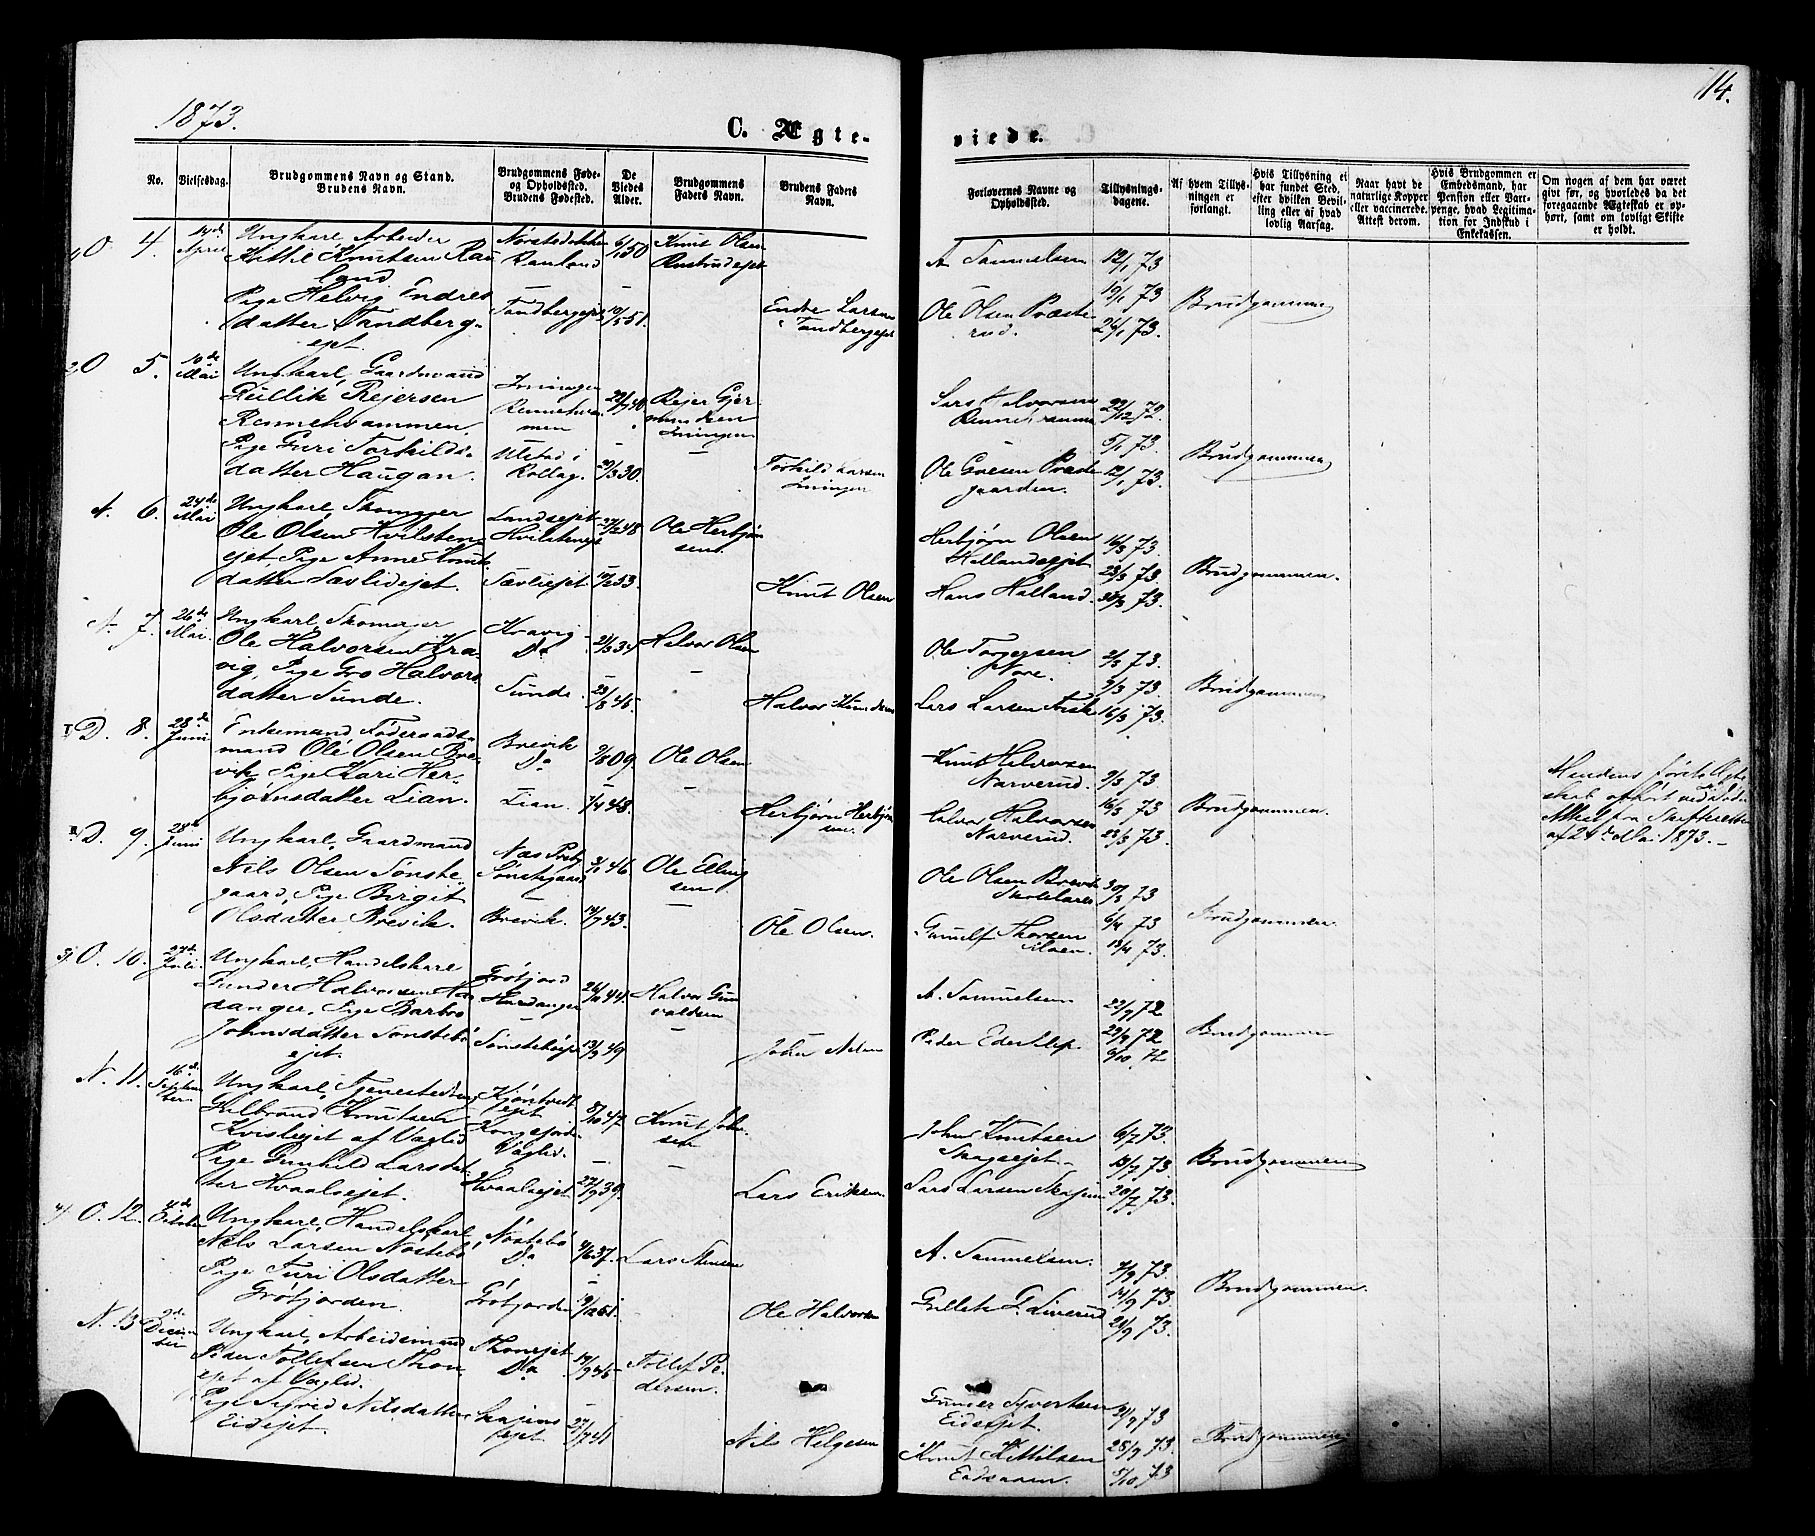 1873.
114.
C. Ægte-
viede.
No.
Vielsesdag.
Brudgommens Navn og Stand.
Brudens Navn.
Brudgommens Føde-
og Opholdssted.
Brudens Fødested.
De
Viedes
Alder.
Brudgommens
Faders Navn.
Brudens Faders
Navn.
Forlovernes Navne og
Opholdssted.
Tillysnings-
dagene.
Af hvem Tillys-
ningen er
forlangt.
Hvis Tillysning ei
har fundet Sted,
efter hvilken Bevil-
ling eller af hvad
lovlig Aarsag.
Naar havt de
naturlige Kopper
eller vaccinerede.
Attest derom.
Hvis Brudgommen er
Embedsmand, har
Pension eller Vart-
penge, hvad Legitima-
tion for Indskud i
Enkekassen.
Om nogen af dem har været
givt før, og hvorledes da det
foregaaende Ægteskab er op-
hørt, samt om lovligt Skifte
er holdt.
O 4.
April
Ungkarl Arbeider
Kittil Knutsen Rau
land
Pige Helvig Endres
datter Tandberg-
ejet.
Rauland
Tandbergejet
6/1 50
10/5 51.
Knut Olsen
Endre Larsen
Tandbergejet
A. Samuelsen
Ole Olsen Præste
rud.
12/1 73
19/1 73
26/1 73
Brudgommen
O 5.
10de
Mai
Ungkarl, Gaardmand
Gullik Rejersen
Rennehvammen.
Pige Guri Torkilds-
datter Haugan.
Irningen
Rennehvam
men
Ulstad i
Rollag.
Rejer Gjer
Irningen
Torkild Larsen
Irningen
Lars Halvorsen
Ole Olsen Præste
gaarden.
29/12 72.
5/1 73.
12/1 73.
Brudgommen
N. 6.
24de
Mai
Ungkarl, Skomager
Ole Olsen Hvilsten-
ejet, Pige Anne Knuts
datter Sævliejet.
Landsejet
Hvilstenejet
Sævliejet
Ole Herbjørn
sen.
Knut Olsen
Herbjørn Olsen
Hellandsejet
Hans Halland.
16/3 73.
23/3 73.
30/3 73.
Brudgommen.
N. 7.
26de
Mai.
Ungkarl, Skomager
Ole Halvorsen Kra-
vig, Pige Gro Halvors
datter Sunde.
Kravig
Do
Sunde.
21/3 34
23/8 45.
Halvor Olsen
Halvor Knudsen
Ole Torgersen
Nore.
Lars Larsen Fisk
2/3 73.
9/3 73.
16/3 73.
Brudgommen
D. 8.
28de
Juni
Enkemand, Føderaads-
mand Ole Olsen Bre-
vik, Pige Kari Her-
bjørnsdatter Lian.
Brevik
Do
Lian.
7/8 09.
7/4 48.
Ole Olsen
Herbjørn Herbjørn
sen.
Knut Halvorsen
Narverud.
Halvor Halvorsen
Narverud.
9/3 73
16/3 73
23/3 73.
Brudgommen.
Mandens første Ægte
skab ophørt ved Død
Attest fra Skifteretten
af 24de Mai 1873.
D. 9.
28de
Juni
Ungkarl, Gaardmand
Nils Olsen Sønste-
gaard, Pige Birgit
Olsdatter Brevik.
Næs Prstg
Sønstegaard
Brevik.
3/1 46
14/9 43.
Ole Elling
sen
Ole Olsen.
Ole Olsen Brevik
Skolelærer
Gunulf Thorsen
30/3 73
6/4 73
13/4 73.
Brudgommen.
O. 10.
27de
Juli.
Ungkarl, Handelskarl
Gunder Halvorsen Har
danger, Pige Barbro
Johnsdatter Sønstebø
ejet.
Grøtjord
Hardanger
Sønstebøejet
26/10 44.
13/3 49
Halvor Gun
valdsen
John Nilsen
A. Samuelsen
Peder Edeklep.
22/9 72
29/9 72
6/10 72
Brudgommen
N. 11.
16de
Septem
ber.
Ungkarl, Tjenestedreng
Hellbrand Knutsen
Kvislejet af Vaglid
Pige Gunhild Larsdat
ter Hvaalsejet.
Kongsjord
Vaglid.
Hvaalsejet
8/10 47
27/9 39.
Knut John
sen
Lars Eriksen
John Knutsen
Skogsejet
Lars Larsen Skajem
6/7 73.
13/7 73.
20/7 73.
Brudgommen
O. 12.
Ungkarl, Handelskarl
Nils Larsen Nostebø
Pige Turi Olsdatter
Grøtjorden.
Nøstebø
Do
Grøtjorden
4/6 37.
19/12 51.
Lars Stensen
Ole Halvorsen
A. Samuelsen.
Gullek G. Liverud
7/9 73.
14/9 73.
21/9 73.
Brudgommen.
N. 13
9de
Decem
ber
Ungkarl, Arbeidsmand
Peder Tollefsen Thon
ejet af Vaglid.
Pige Sigrid Nilsdatter
Eidsejet.
Thonejet
Do
Skajems
ejet
19/9 45
27/7 41
Tollef Pe
dersen.
Nils Helgesen
Gunder Syvertsen
Eidsejet
Knut Kittilsen
Eidsaaen.
21/9 73
28/9 73.
5/10 73
Brudgommen